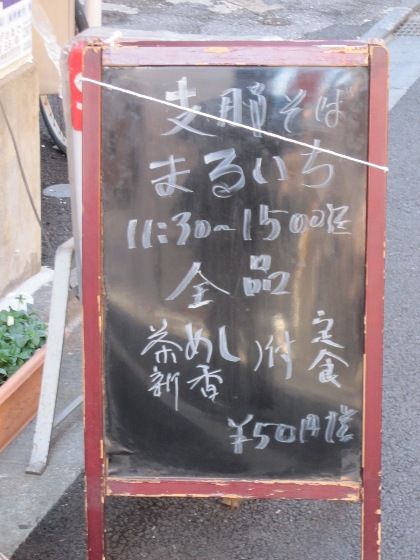 支那そば
まるいち
11:30~1500迄
全品
茶めし
新香
付
定食
¥50円増